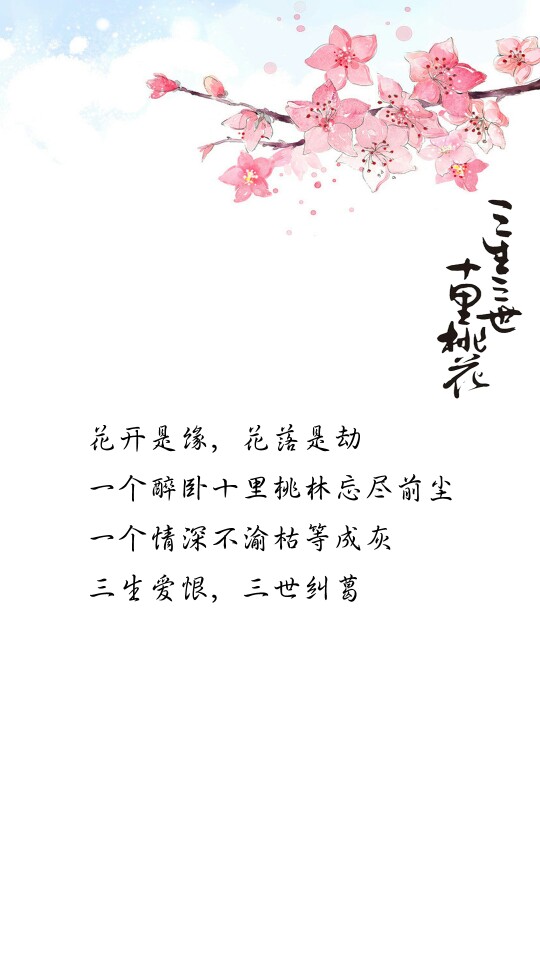 三生三世
十里桃花
花开是缘，花落是劫
一个醉卧十里桃林忘尽前尘
一个情深不渝枯等成灰
三生爱恨，三世纠葛